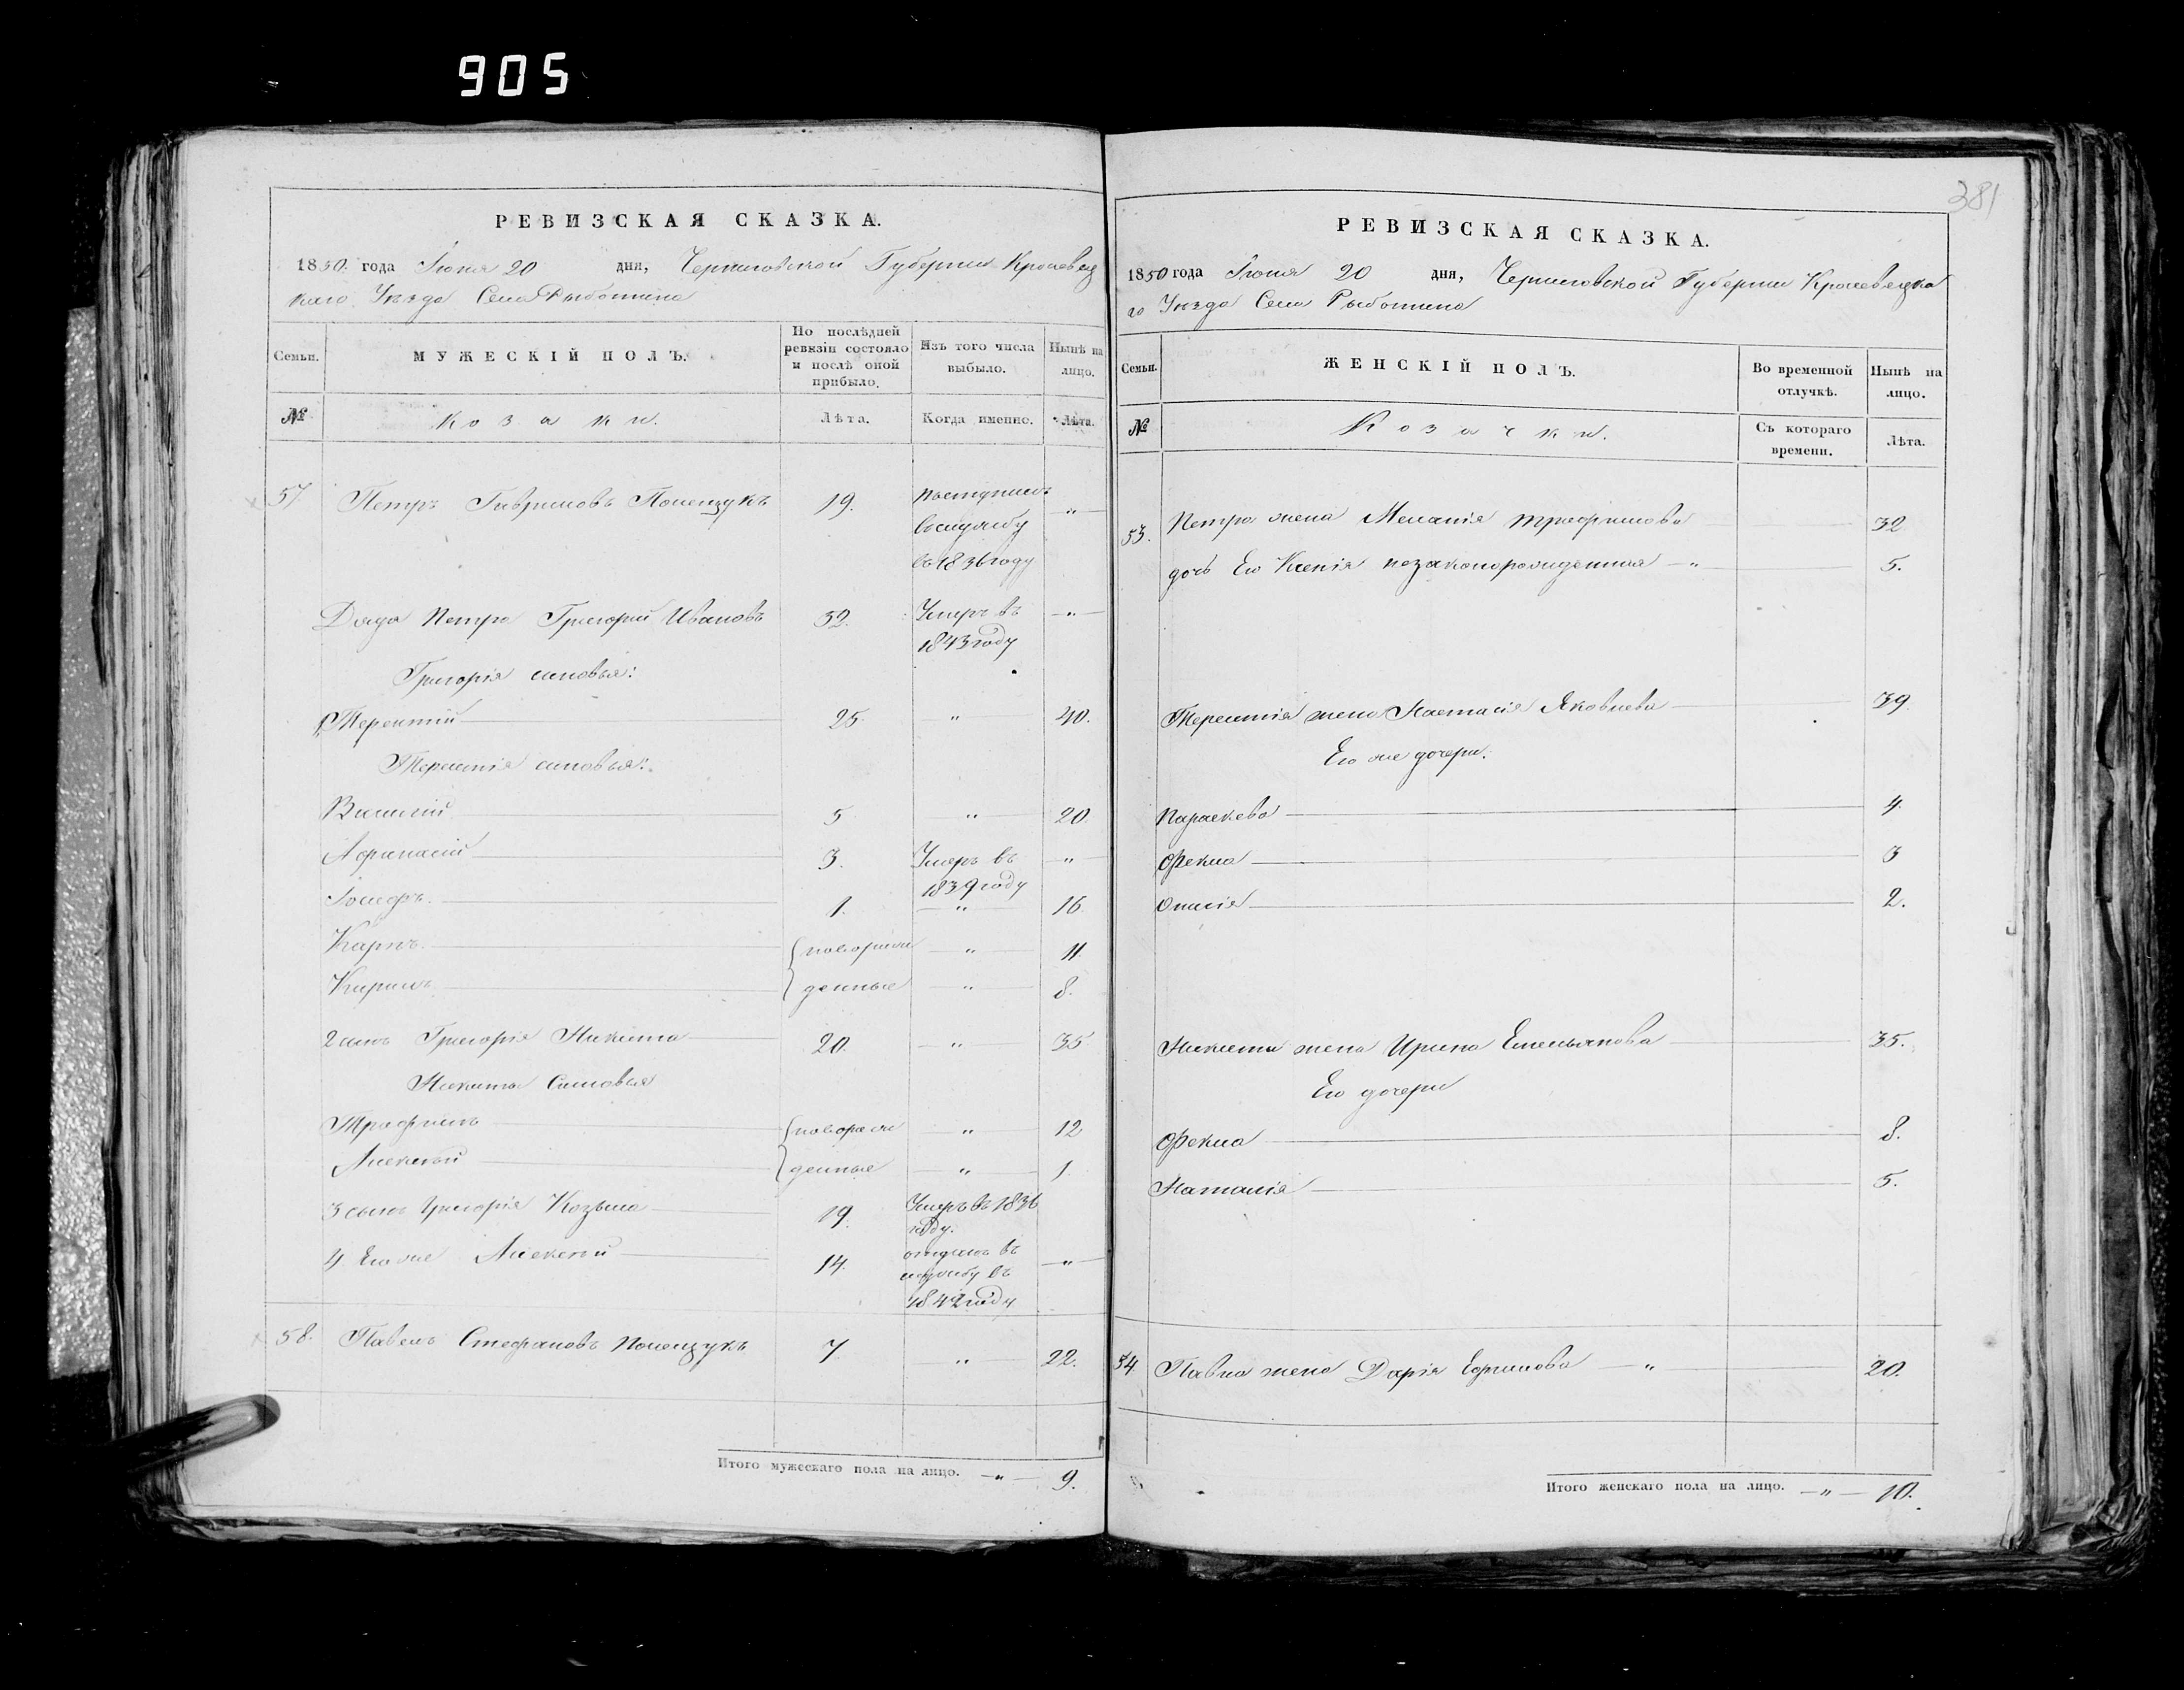 905
381
РЕВИЗСКАЯ СКАЗКА.
1850. года Іюня 20 дня, Черниговской Губерніи Кролевец
каго Уѣзда Села Рыботина
Семьи. МУЖЕСКІЙ ПОЛЪ. По послѣдней ревизіи состояло и послѣ оной прибыло. Изъ того числа выбыло. Нынѣ на лицо.
№ Козаки. Лѣта. Когда именно. Лѣта.
57 Петръ Гавриловъ Полещукъ 19. поступилъ „
вслужбу
въ 1836 году
Дядя Петра Григорій Ивановъ 52. Умеръ въ „
1843 году
Григорія сыновья:
1 Терентій 25 „ 40.
Терентія сыновья:
Василій 5 „ 20
Афанасій 3. Умеръ въ „
1839 году
Іосифъ 1. „ 16
Карпъ новорож „ 11.
Кирилъ денные „ 8.
2 сынъ Григорія Никита 20. „ 35
Никиты Сыновья
Трофимъ новорож „ 12
Алексѣй денные „ 1
3 сынъ Григорія Козьма 19. Умеръ въ 1836
году.
4 Его же Алексѣй 14. отданъ въ „
службу въ
1842 году
58. Павелъ Стефановъ Полещукъ 7 „ 22.
Итого мужескаго пола на лицо. „ 9.
РЕВИЗСКАЯ СКАЗКА.
1850 года Іюня 20 дня, Черниговской Губерніи Кролевецка
го Уѣзда Села Рыботина
Семьи. ЖЕНСКІЙ ПОЛЪ. Во временной отлучкѣ. Нынѣ на лицо.
№ Козачки. Съ котораго времени. Лѣта.
53. Петра жена Меланія Трофимова 32
дочь Его Ксенія незаконорожденная „ 5.
Терентія жена Настасія Яковлева 39
Его же дочери:
Параскева 4
Фекла 3
2.
Никиты жена Ирина Емельянова 35.
Его дочери
Фекла 8.
Наталія 5.
54 Павла жена Дарія Ефимова „ 20.
Итого женскаго пола на лицо. „ 10.